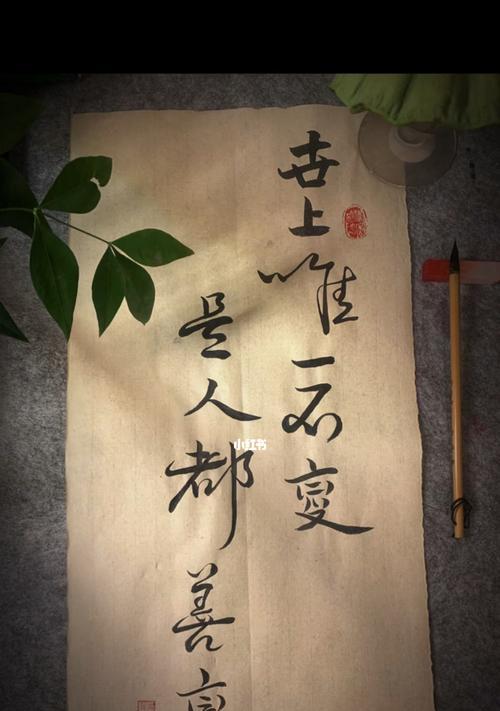 世上唯一不变
是人都善变
小红书